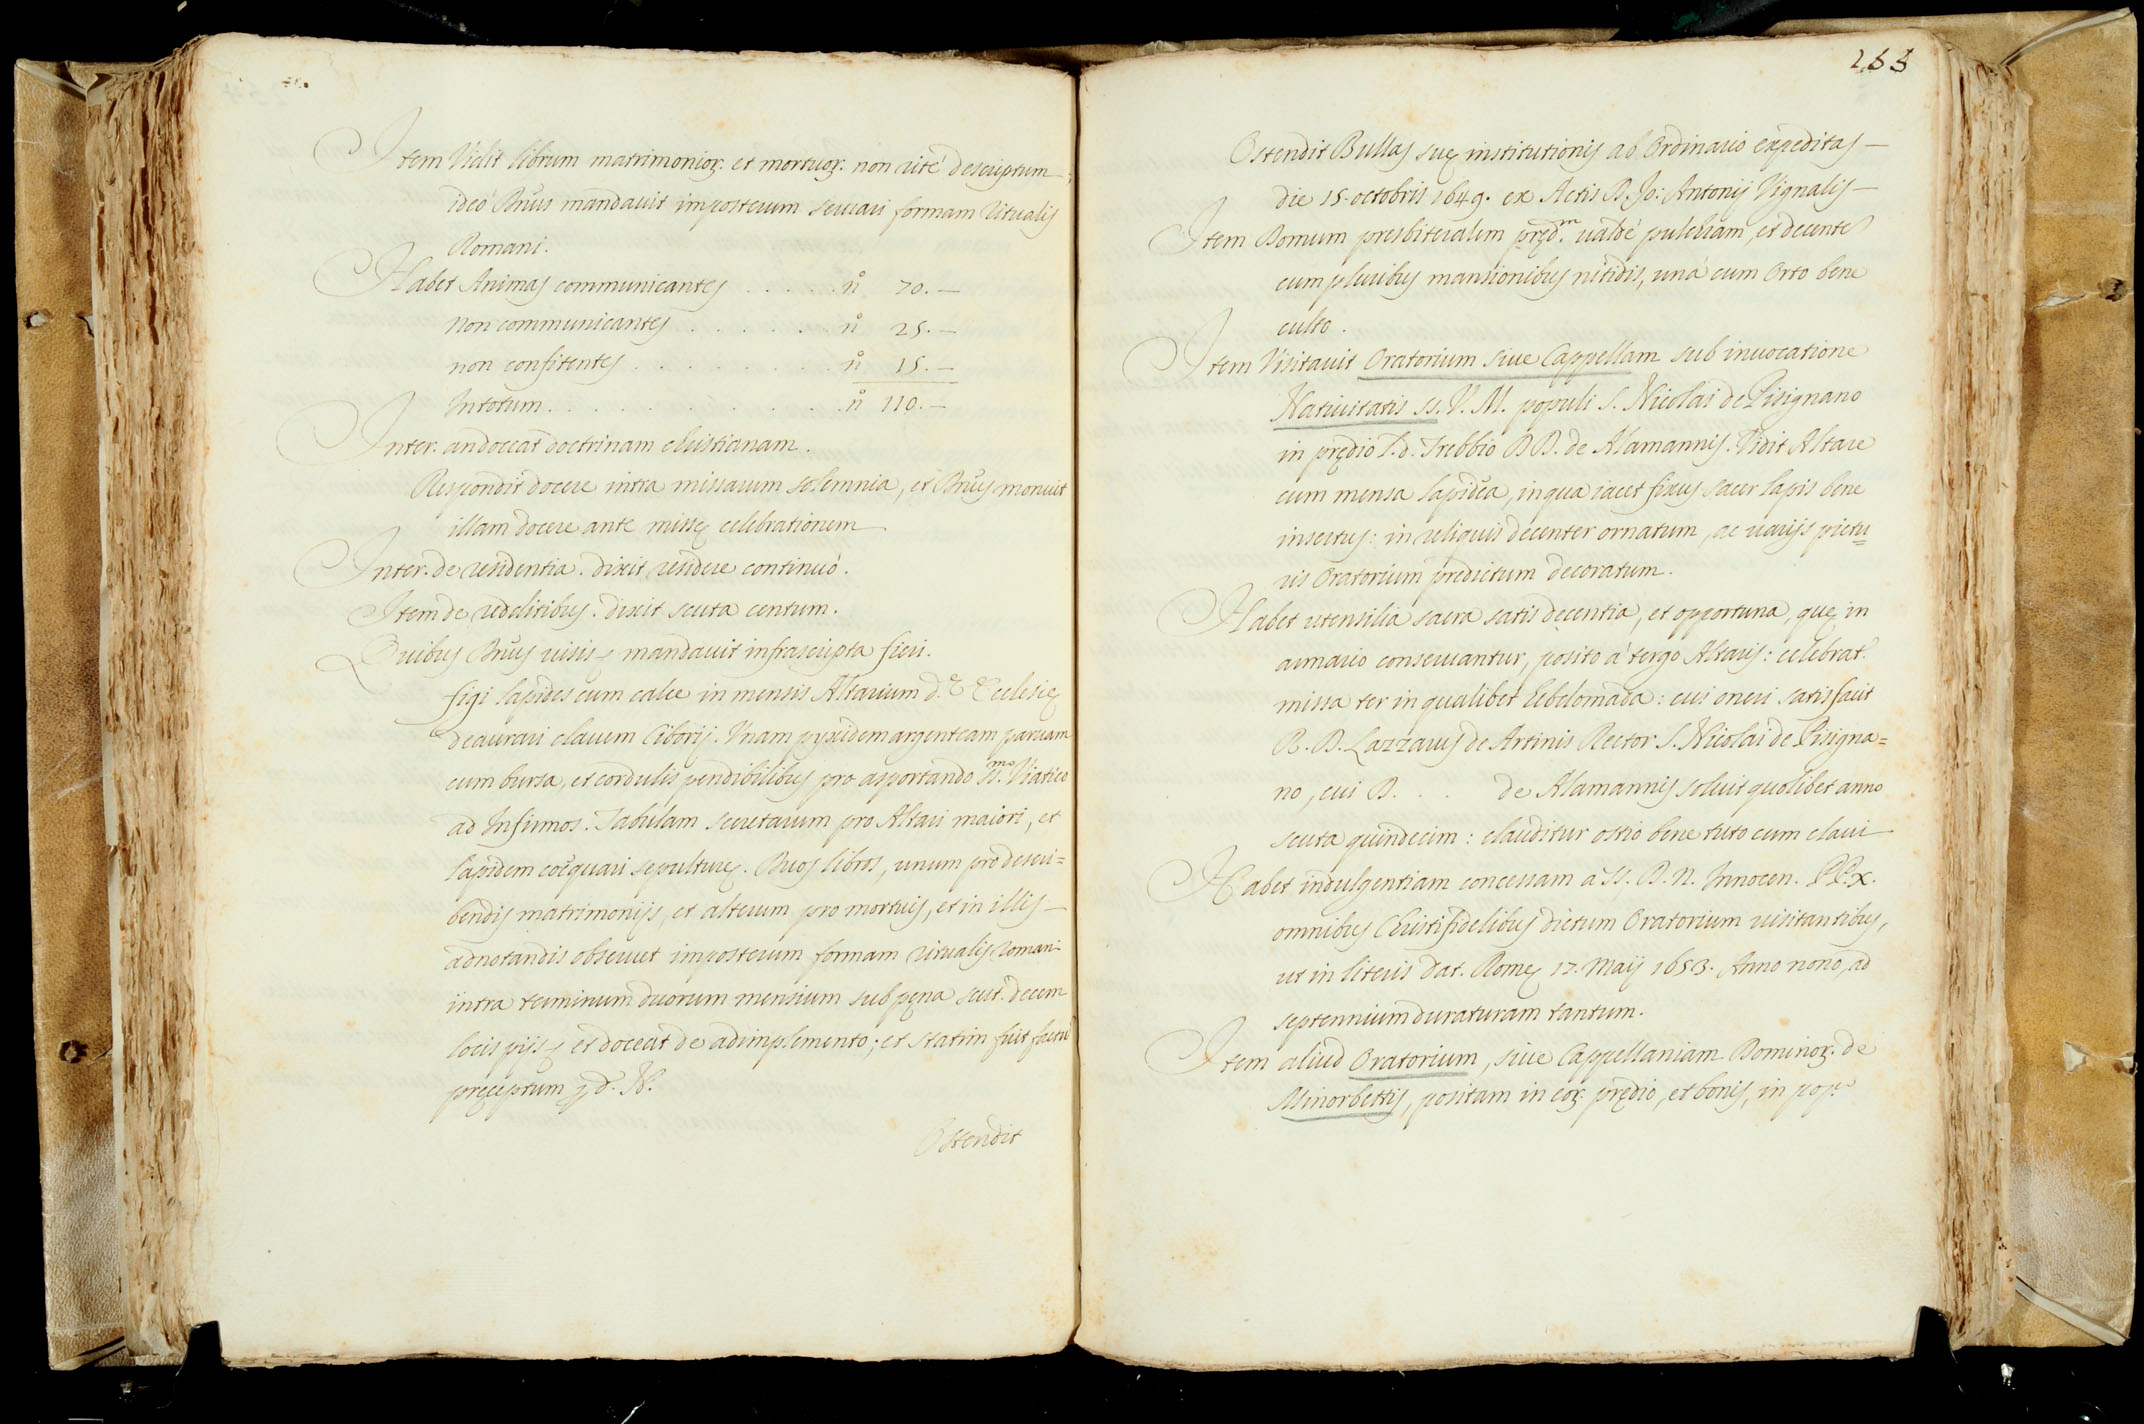 Item Vidit librum matrimonior. et mortuor. non rité descriptum
ideó Dn̄us mandauit imposterum seruari formam Ritualis
Romani.
Habet Animas communicantes . . . . . n.° 70. —
non communicantes . . . . . . n.° 25. —
non confitentes . . . . . . . . n.° 15. —
In totum . . . . . . . . . . . n.° 110. —
Inter. an doceat doctrinam christianam.
Respondit docere intra missarum solemnia, et Dn̄us monuit
illam docere ante missę celebrationem
Inter. de residentia. dixit residere continuó.
Item de redditibus. dixit scuta centum.
Quibus Dn̄us visis mandauit infrascripta fieri.
figi lapides cum calce in mensis Altarium d.ę Ecclesię
deaurari clauem Ciborij. Vnam pyxidem argenteam paruam
cum bursa, et cordulis pendibilibus pro asportando SS.mo Viatico
ad Infirmos. Tabulam secretarum pro Altari maiori, et
lapidem coęquari sepulturę. Duos libros, unum pro descri=
bendis matrimonijs, et alterum pro mortuis, et in illis
adnotandis obseruet imposterum formam ritualis Romani
intra terminum duorum mensium sub pęna scut. decem
locis pijs et doceat de adimplemento; et statim fuit factū
pręceptum p d. N.
Ostendit
253
Ostendit Bullas suę institutionis ab Ordinario expeditas —
die 15. octobris 1649. ex Actis D. Jo: Antonij Vignalis —
Item Domum presbiteralem pręd.m ualdé pulchram, et decente
cum pluribus mansionibus nitidis, uná cum Orto bene
culto.
Item Visitauit Oratorium siue Cappellam sub inuocatione
Natiuitatis SS. V. M. populi S. Nicolai de Pisignano
in prędio l. d. Trebbio DD. de Alamannis. Vidit Altare
cum mensa lapidea, in qua iacet fixus sacer lapis bene
insertus: in reliquis decenter ornatum, ac uarijs pictu=
ris Oratorium predictum decoratum.
Habet utensilia sacra satis decentia, et opportuna, quę in
armario conseruantur, posito á tergo Altaris: celebrat.
missa ter in qualibet hebdomada: cui oneri satisfacit
R. D. Lazzarus de Artinis Rector S. Nicolai de Pisigna=
no, cui D. . . de Alamannis soluit quolibet anno
scuta quindecim: clauditur ostio bene tuto cum claui
Habet indulgentiam concessam a SS. D. N. Innocen. PP. X.
omnibus Christifidelibus dictum Oratorium uisitantibus,
ut in literis dat. Romę 17. Maij 1653. Anno nono, ad
septennium duraturam tantum.
Item aliud Oratorium, siue Cappellaniam Dominor. de
Minorbettis, positam in eor. prędio, et bonis, in pop.°